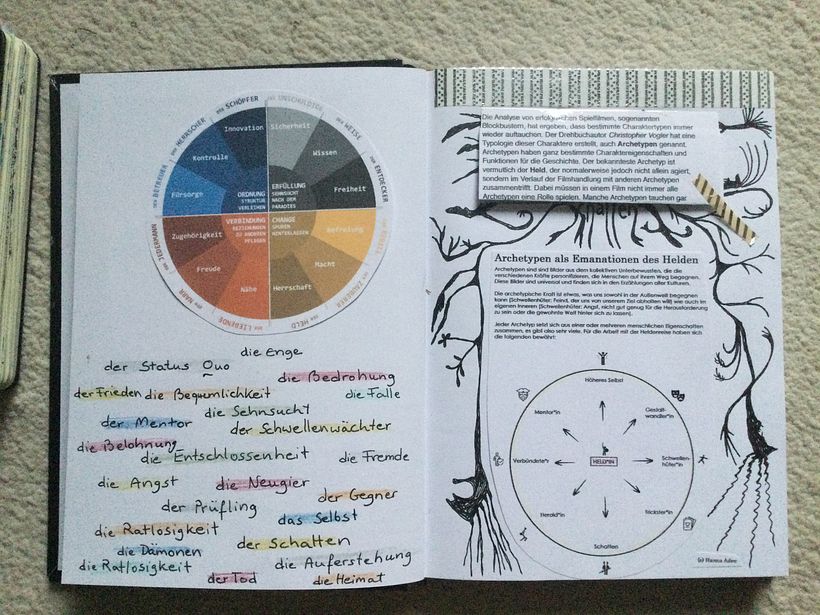 DER SCHÖPFER
DER UNSCHULDIGE
DER WEISE
DER ENTDECKER
DER REBELL
DER ZAUBERER
DER HELD
DER LIEBENDE
DER NARR
DER JEDERMANN
DER BETREUER
DER HERRSCHER
Innovation
Sicherheit
Kontrolle
Wissen
Fürsorge
Freiheit
ORDNUNG
STRUKTUR
VERLEIHEN
ERFÜLLUNG
SEHNSUCHT
NACH DEM
PARADIES
VERBINDUNG
BEZIEHUNGEN
ZU ANDEREN
PFLEGEN
CHANGE
SPUREN
HINTERLASSEN
Zugehörigkeit
Befreiung
Freude
Macht
Nähe
Herrschaft
die Enge
der Status Quo
die Bedrohung
der Frieden die Bequemlichkeit die Falle
die Sehnsucht
der Mentor der Schwellenwächter
die Belohnung
die Entschlossenheit die Fremde
die Angst die Neugier
der Gegner
der Prüfling
das Selbst
die Ratlosigkeit
der Schatten
die Dämonen
die Ratlosigkeit die Auferstehung
der Tod die Heimat
Die Analyse von erfolgreichen Spielfilmen, sogenannten
Blockbustern, hat ergeben, dass bestimmte Charaktertypen immer
wieder auftauchen. Der Drehbuchautor Christopher Vogler hat eine
Typologie dieser Charaktere erstellt, auch Archetypen genannt.
Archetypen haben ganz bestimmte Charaktereigenschaften und
Funktionen für die Geschichte. Der bekannteste Archetyp ist
vermutlich der Held, der normalerweise jedoch nicht allein agiert,
sondern im Verlauf der Filmhandlung mit anderen Archetypen
zusammentrifft. Dabei müssen in einem Film nicht immer alle
Archetypen eine Rolle spielen. Manche Archetypen tauchen gar
Archetypen als Emanationen des Helden
Archetypen sind sind Bilder aus dem kollektiven Unterbewussten, die die
verschiedenen Kräfte personifizieren, die Menschen auf ihrem Weg begegnen.
Diese Bilder sind universal und finden sich in den Erzählungen aller Kulturen.
Die archetypische Kraft ist etwas, was uns sowohl in der Außenwelt begegnen
kann (Schwellenhüter: Feind, der uns von unserem Ziel abhalten will) wie auch im
eigenen Inneren (Schwellenhüter: Angst, nicht gut genug für die Herausforderung
zu sein oder die gewohnte Welt hinter sich zu lassen).
Jeder Archetyp setzt sich aus einer oder mehreren menschlichen Eigenschaften
zusammen, es gibt also sehr viele. Für die Arbeit mit der Heldenreise haben sich
die folgenden bewährt:
Höheres Selbst
Mentor*in
Gestalt-
wandler*in
Verbündete*r
HELD*IN
Schwellen-
hüter*in
Herold*in
Trickster*in
Schatten